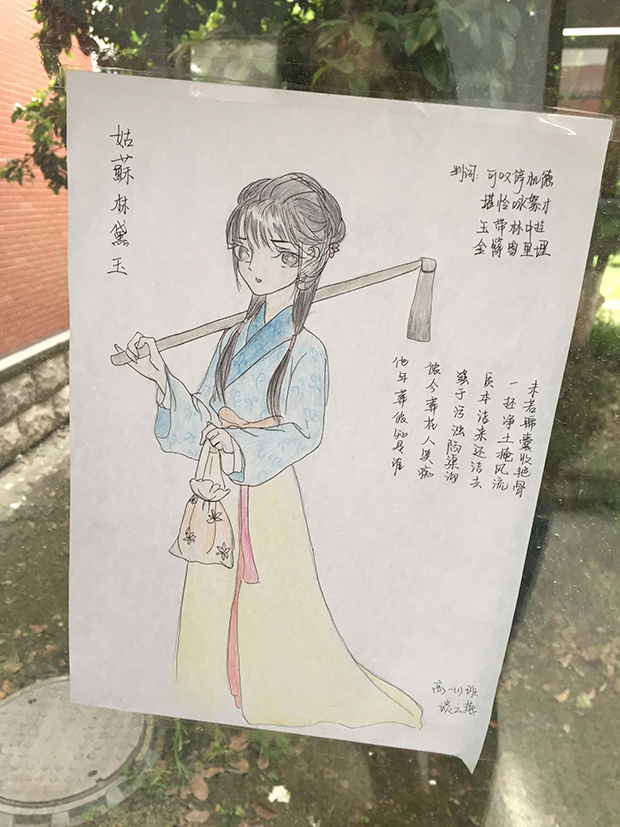 姑蘇林黛玉
判词：可叹停机德
堪怜咏絮才
玉带林中挂
金簪雪里埋
未若锦囊收艳骨
一抔净土掩风流
质本洁来还洁去
强于污浊陷渠沟
侬今葬花人笑痴
他年葬侬知是谁
高一(1)班